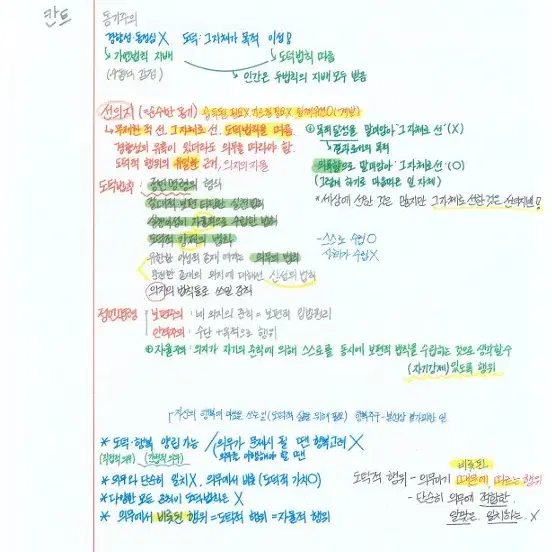 칸트
동기주의
경향성·동정심 X 도덕: 그 자체가 목적 이성 O
↳ 자연법칙 지배 ↳ 도덕법칙 따름
인간은 두 법칙의 지배 모두 받음
선의지 (순수한 동기)
↳ 무제한적 선, 그 자체로 선, 도덕법칙을 따름
경향성의 유혹이 있더라도 의무를 따라야 함.
도덕적 행위의 유일한 근거, 의지의 자율
목적달성을 말미암아 '그 자체로 선' (X)
↳ 결과로서의 목적
으로 말미암아 '그 자체로 선' (O)
(그렇게 하기로 마음먹은 일 자체)
* 세상에 선한 것은 많지만 그 자체로 선한 것은 선의지뿐!
도덕법칙: 정언명령의 형식
절대적 보편타당한 실천법칙
실천이성이 자율적으로 수립한 법칙
도덕적 강제의 법칙
- 스스로 수립 O
사회가 수립 X
유한한 이성적 존재에게는 의무의 법칙
완전한 존재의 의지에 대해선 신성의 법칙
의지의 법칙들로 쓰일 준칙
정언명령 보편주의: 네 의지의 준칙 = 보편적 입법원리
인격주의: 수단 + 목적으로 행위
자율주의: 의지가 자기의 준칙에 의해 스스로를 동시에 보편적 법칙을 수립하는 것으로 생각할 수
(자기강제) 있도록 행위
* 도덕·행복 양립 가능 / 의무가 문제시 될 땐 행복고려 X
(직접적 의무) (간접적 의무) 의무를 이행해야 할 땐
* 의무와 단순히 일치 X, 의무에서 비롯 (도덕적 가치 O)
* 다양한 모든 준칙이 도덕법칙은 X
* 의무에서 비롯된 행위 = 도덕적 행위 = 자율적 행위
비롯된
도덕적 행위 - 의무이기 때문에, 따르는 행위
- 단순히 의무에 적합한,
알맞은, 일치하는 X